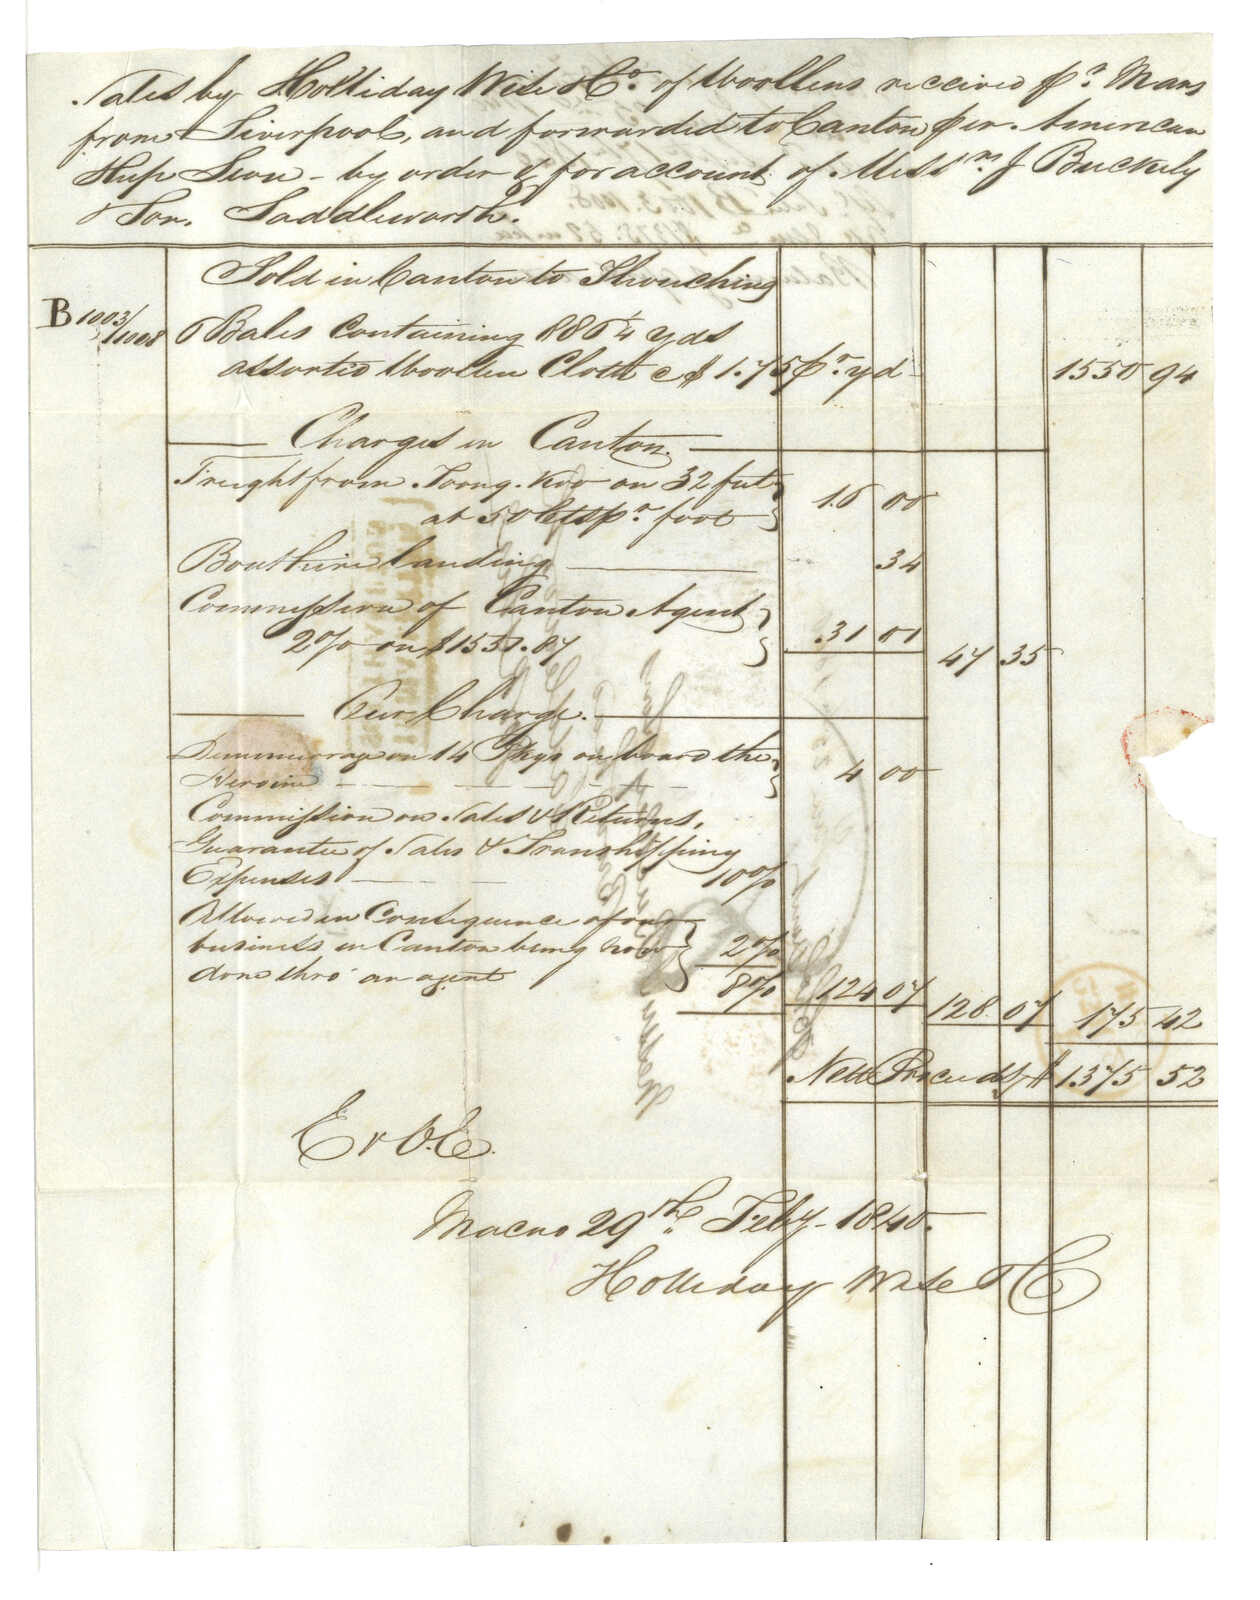 Sales by Holliday Wise & Co. of Woollens received pr. Mars
from Liverpool, and forwarded to Canton per American
Ship Leon - by order & for account of Messrs. J Buckely
& Son. Saddleworth.
Sold in Canton to
B 1003/1008 6 Bales containing 886 1/4 yds
assorted Woollen Cloth @ $1.75 pr. yd 1550 94
Charges in Canton.
Freight from Toong.Koo on 32 feet
at 50 Cts pr. foot 16 00
Boat hire landing 34
Commission of Canton Agent
2% on $1550.87 31 01 47 35
Our Charge.
Demmurrage on 14 Pkgs on board the
Heroine 4 00
Commission on Sales & Returns,
Guarantee of Sales & Transhipping
Expenses 10%
Allowed in Consequence of our
business in Canton being now 2%
done thro' an agent 8% 124 07 128 07 175 42
Nett Proceeds $ 1375 52
E & O.E.
Macao 29th Feby - 1840.
Holliday Wise & Co